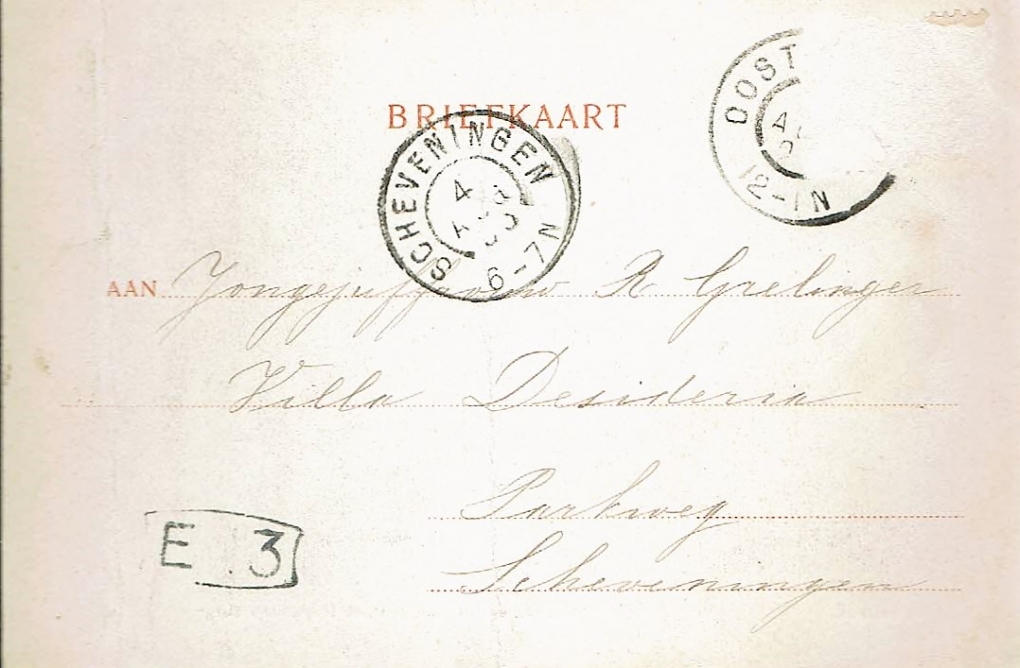 BRIEFKAART
OOST
12-1N
SCHEVENINGEN
4
6-7N
AAN Jongejuffrouw R Grelinger
Villa Desideria
Parkweg
Scheveningen
E 3